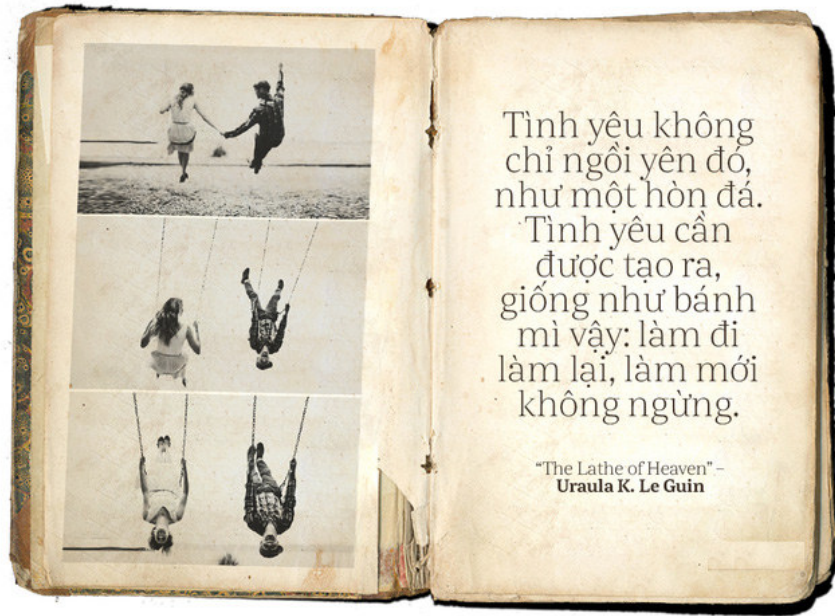 Tình yêu không
chỉ ngồi yên đó,
như một hòn đá.
Tình yêu cần
được tạo ra,
giống như bánh
mì vậy: làm đi
làm lại, làm mới
không ngừng.
“The Lathe of Heaven” –
Uraula K. Le Guin